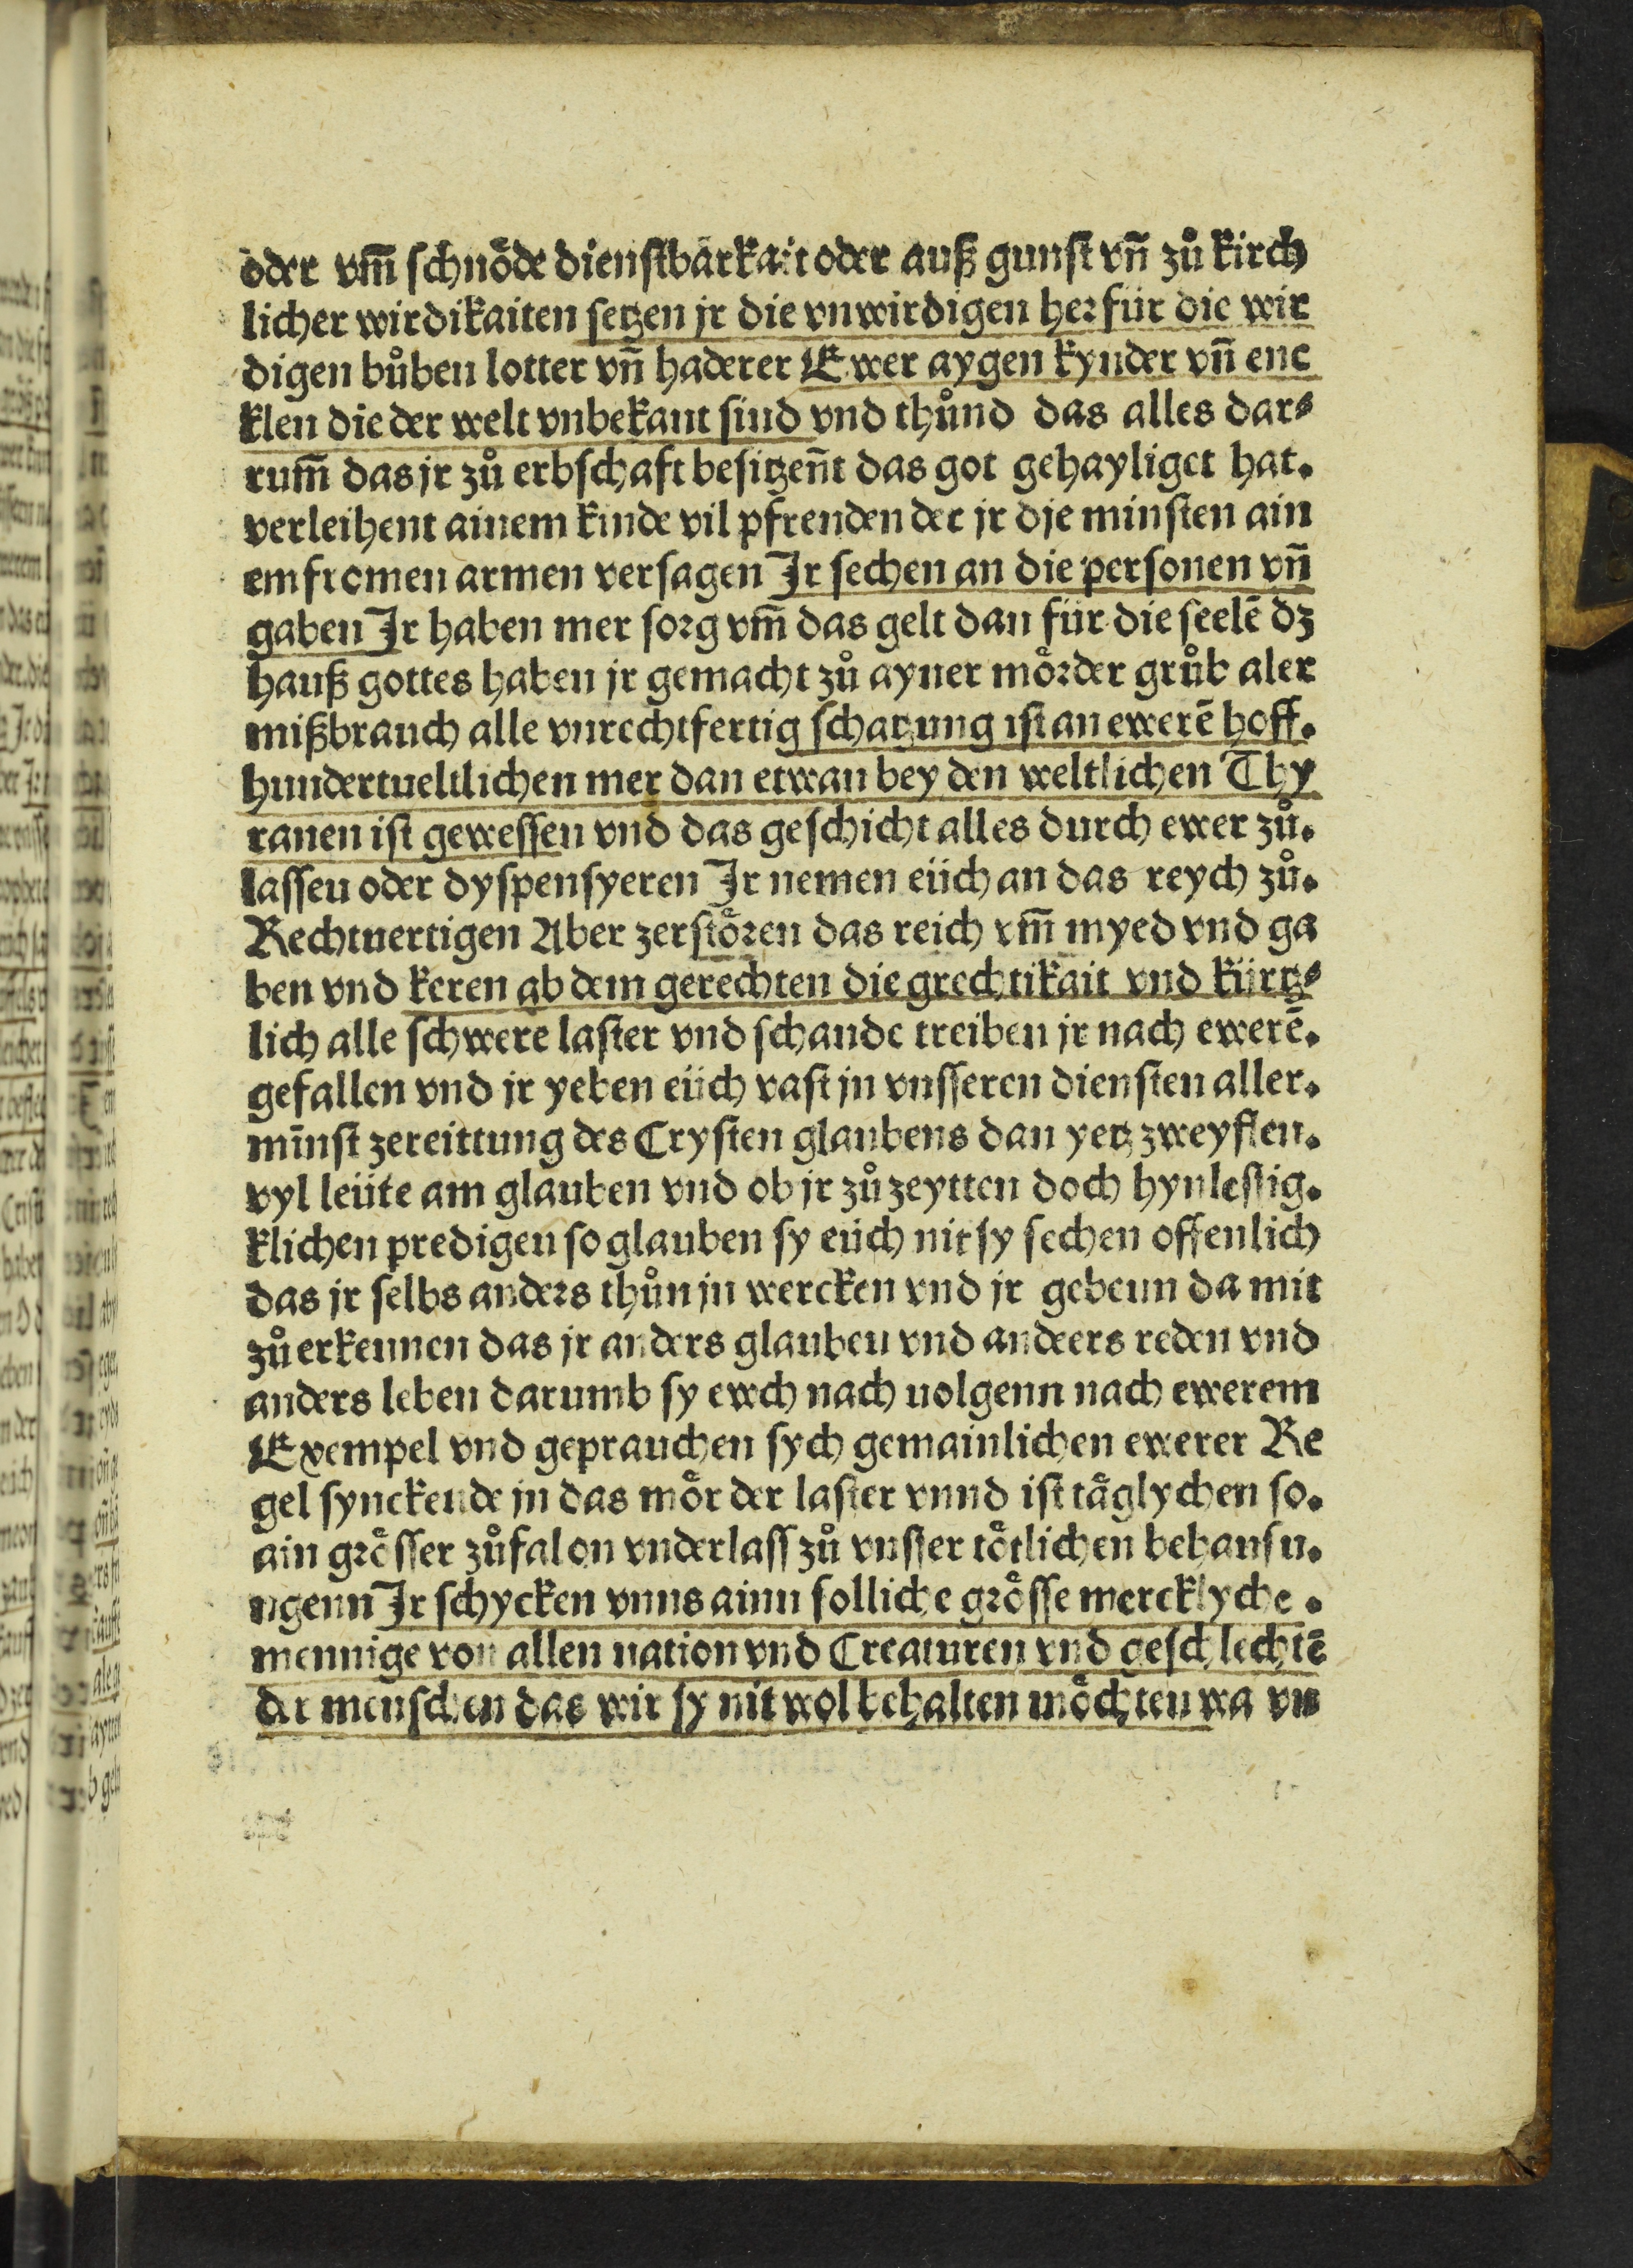 oder vm̄ schnöde dienstbarkait oder auß gunst vn̄ zů kirch
licher wirdikaiten setzen jr die vnwirdigen herfür die wir
digen bůben lotter vn̄ haderer Ewer aygen kynder vn̄ enc
klen die der welt vnbekant sind vnd thůnd das alles dar⸗
rum̄ das jr zů erbschaft besitzen̄t das got gehayliget hat.
verleihent ainem kinde vil pfrenden der jr die minsten ain
em fromen armen versagen Ir sechen an die personen vn̄
gaben Ir haben mer sorg vm̄ das gelt dan für die seelē dz
hauß gottes haben jr gemacht zů ayner mörder grůb aler
mißbrauch alle vnrechtfertig schatzung ist an ewerē hoff.
hundertueltlichen mer dan etwan bey den weltlichen Thy
ranen ist gewessen vnd das geschicht alles durch ewer zů.
lassen oder dyspensyeren Ir nemen eüch an das reych zů.
Rechtuertigen Aber zerstören das reich vm̄ myed vnd ga
ben vnd keren ab dem gerechten die grechtikait vnd kürtz⸗
lich alle schwere laster vnd schande treiben jr nach ewerē.
gefallen vnd jr yeben eüch vast jn vnsseren diensten aller.
mīnst zereittung des Crysten glaubens dan yetz zweyflen.
vyl leüte am glauben vnd ob jr zů zeytten doch hynlessig.
klichen predigen so glauben sy eüch nit sy sechen offenlich
das jr selbs anders thůn jn wercken vnd jr gebenn da mit
zů erkennen das jr anders glauben vnd andeers reden vnd
anders leben darumb sy ewch nach uolgenn nach ewerem
Exempel vnd geprauchen sych gemainlichen ewerer Re
gel synckende jn das mör der laster vnnd ist täglychen so.
ain grösser zůfal on vnderlass zů vnsser tötlichen behansu.
ngenn Ir schycken vnns ainn solliche grösse mercklyche.
mennige von allen nation vnd Creaturen vnd geschlechtē
der menschen das wir sy nit wol behalten möchten wa vn